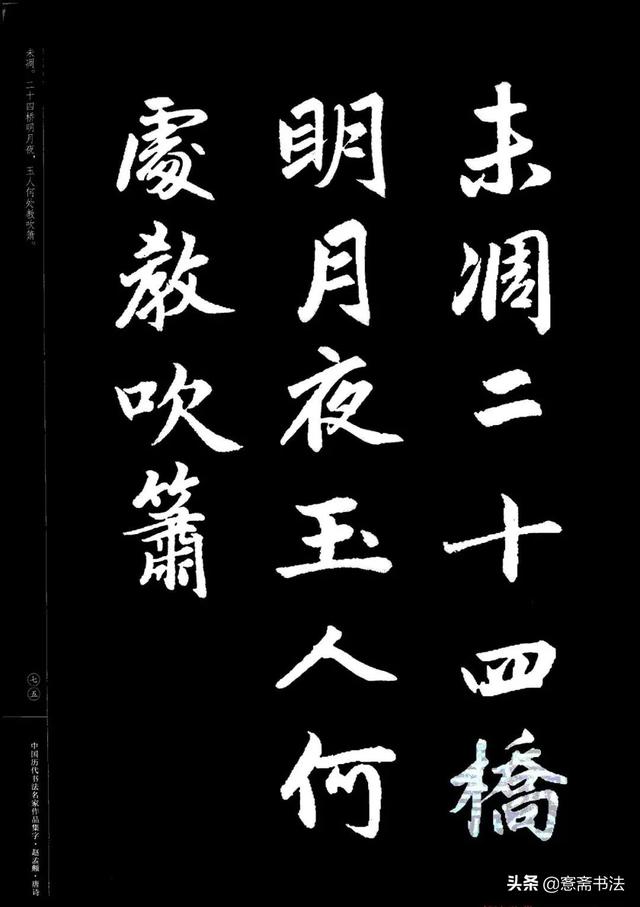 未凋二十四橋
明月夜玉人何
處教吹簫
未凋。二十四桥明月夜，玉人何处教吹箫。
七五
中国历代书法名家作品集字·赵孟頫·唐诗
头条@窸斋书法